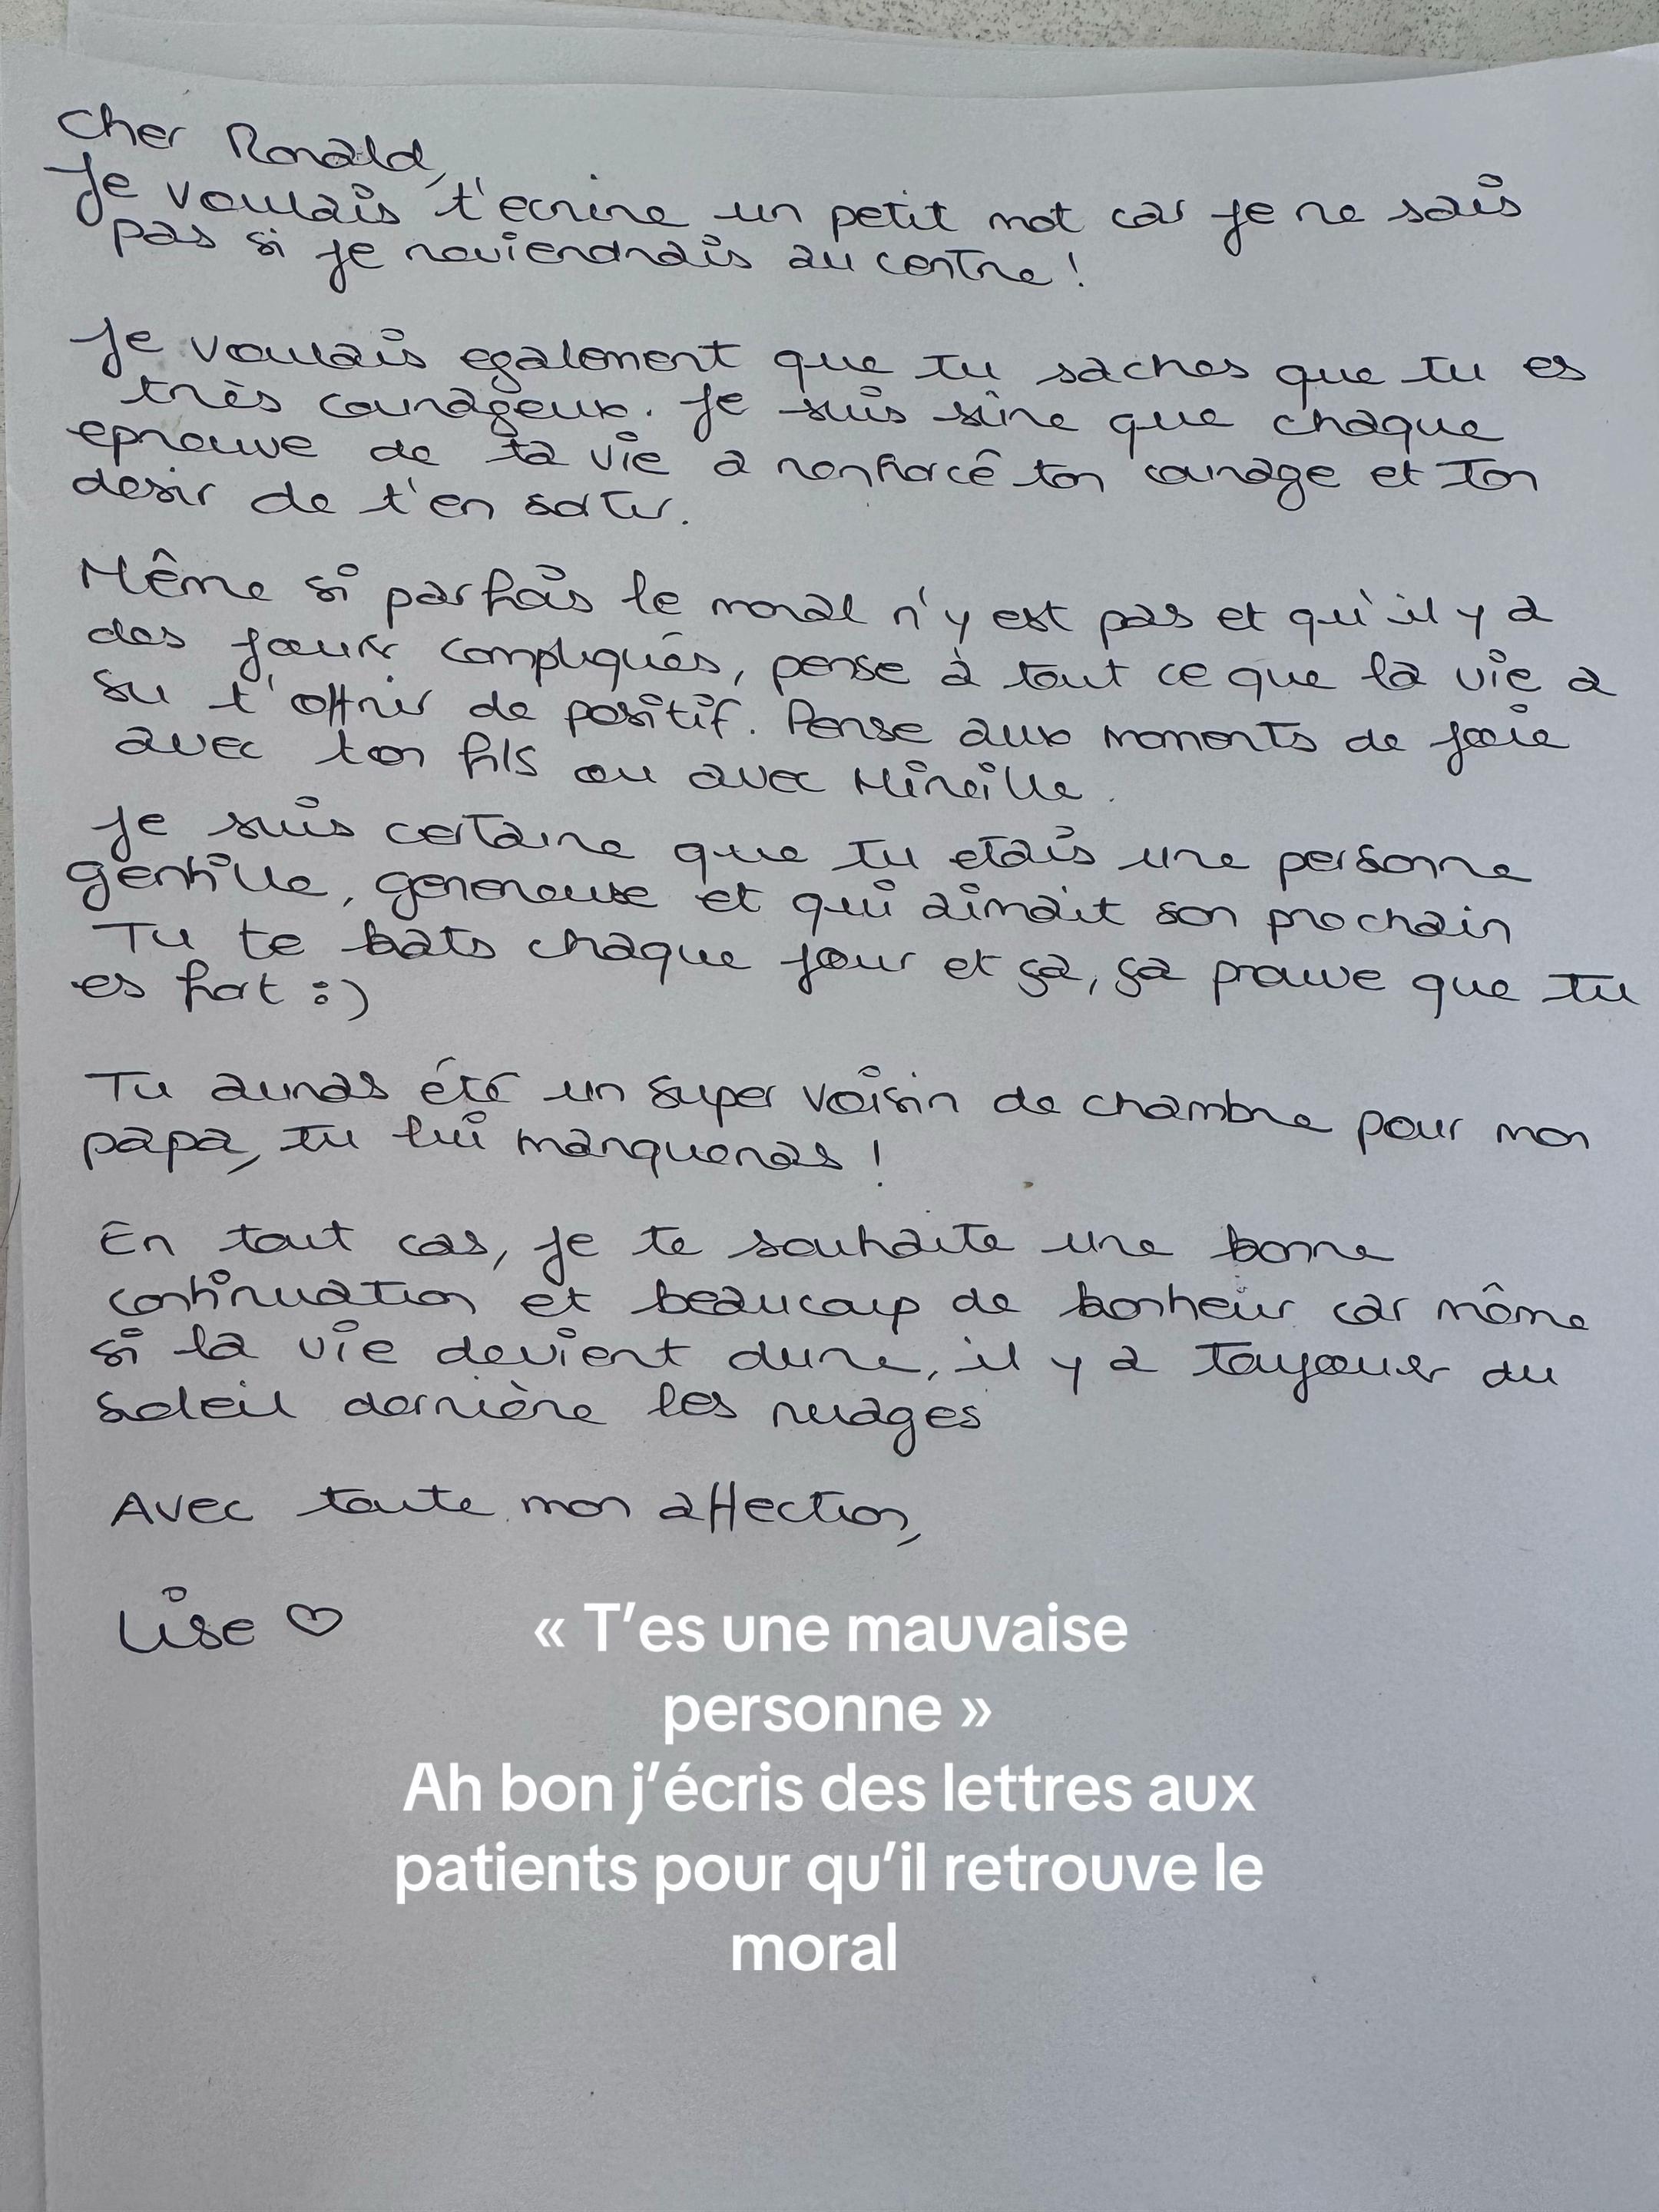 Cher Ronald,
Je voulais t'ecrire un petit mot car je ne sais
pas si je reviendrais au centre !
Je voulais egalement que tu saches que tu es
très courageux. Je suis sûre que chaque
epreuve de ta vie a renforcé ton courage et ton
desir de t'en sortir.
Même si parfois le moral n'y est pas et qu'il y a
des jours compliqués, pense à tout ce que la vie a
su t'offrir de positif. Pense aux moments de joie
avec ton fils ou avec Mireille.
Je suis certaine que tu etais une personne
gentille, genereuse et qui aimait son prochain
Tu te bats chaque jour et ça, ça prouve que tu
es fort :)
Tu auras été un super voisin de chambre pour mon
papa, tu lui manqueras !
En tout cas, je te souhaite une bonne
continuation et beaucoup de bonheur car même
si la vie devient dure, il y a toujours du
soleil derrière les nuages
Avec toute mon affection,
Lise ♡
« T'es une mauvaise
personne »
Ah bon j'écris des lettres aux
patients pour qu'il retrouve le
moral